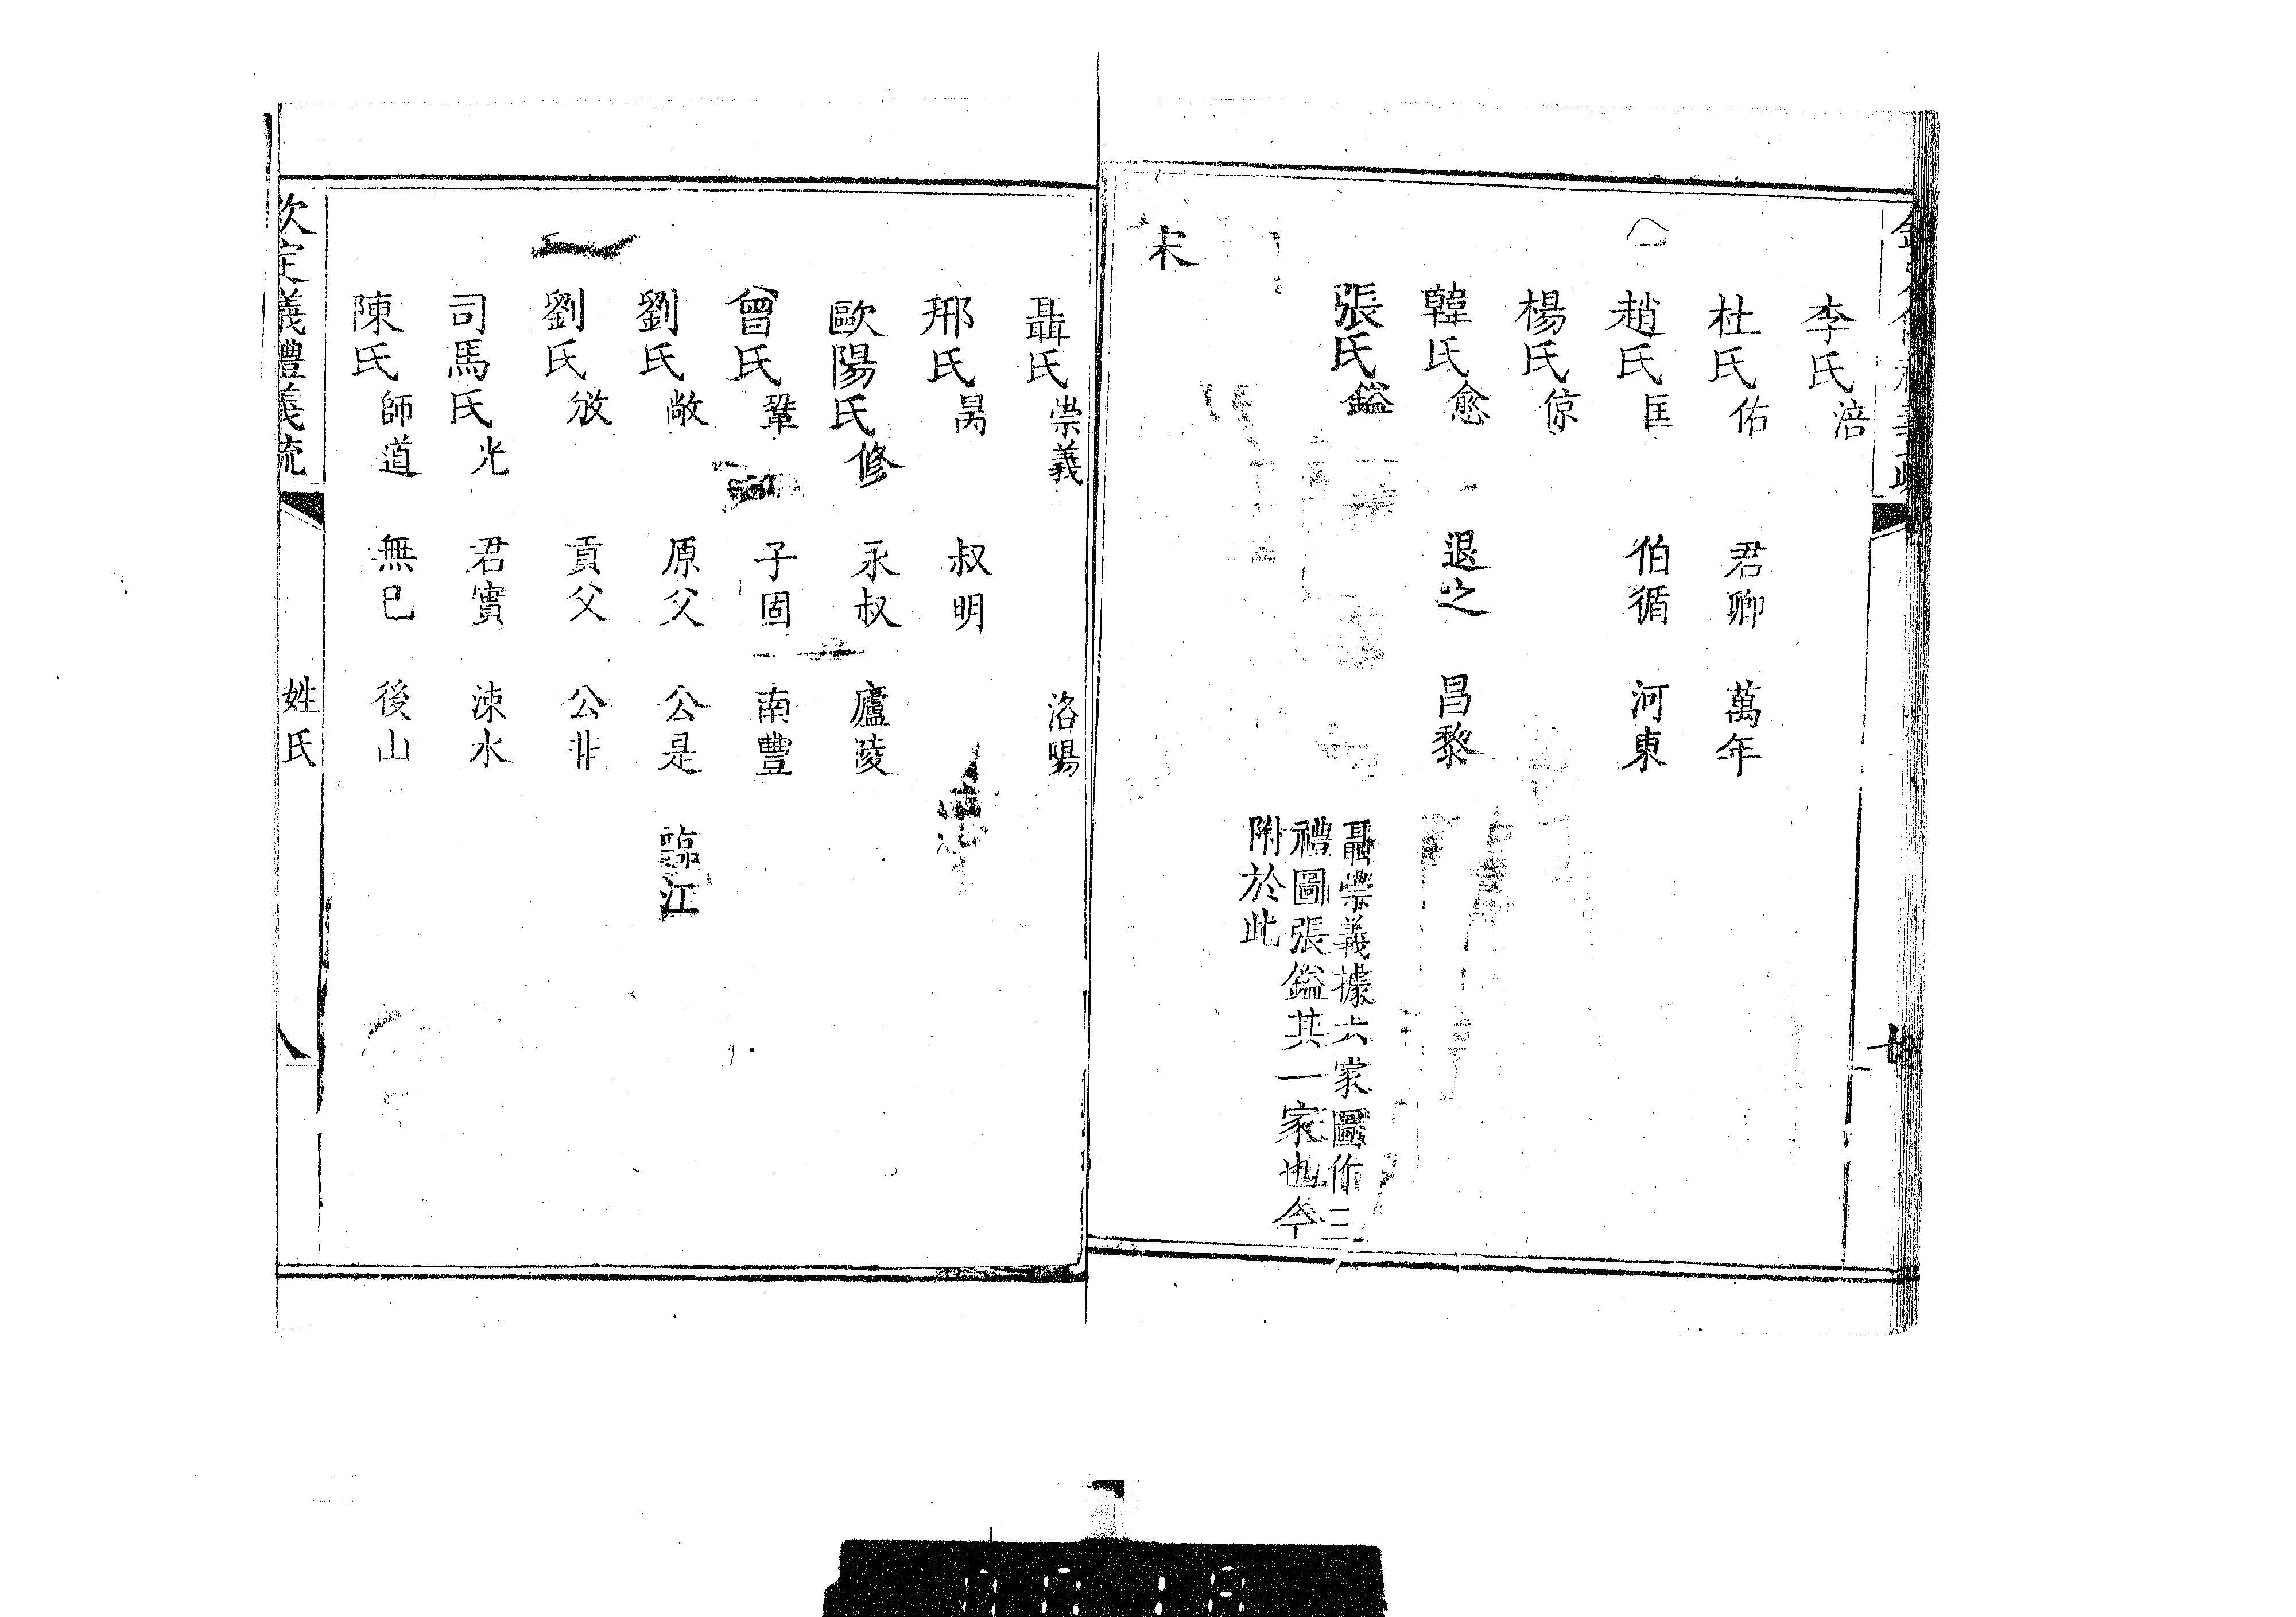 李氏涪
杜氏佑 君卿 萬年
趙氏匡 伯循 河東
楊氏倞
韓氏愈 退之 昌黎
張氏鎰 聶崇義據六家圖作三
禮圖張鎰其一家也今
附於此
宋
聶氏崇義 洛陽
邢氏昺 叔明
歐陽氏修 永叔 廬陵
曾氏鞏 子固 南豐
劉氏敞 原父 公是 臨江
劉氏攽 貢父 公非
司馬氏光 君實 涑水
陳氏師道 無已 後山
欽定儀禮義疏 姓氏 八